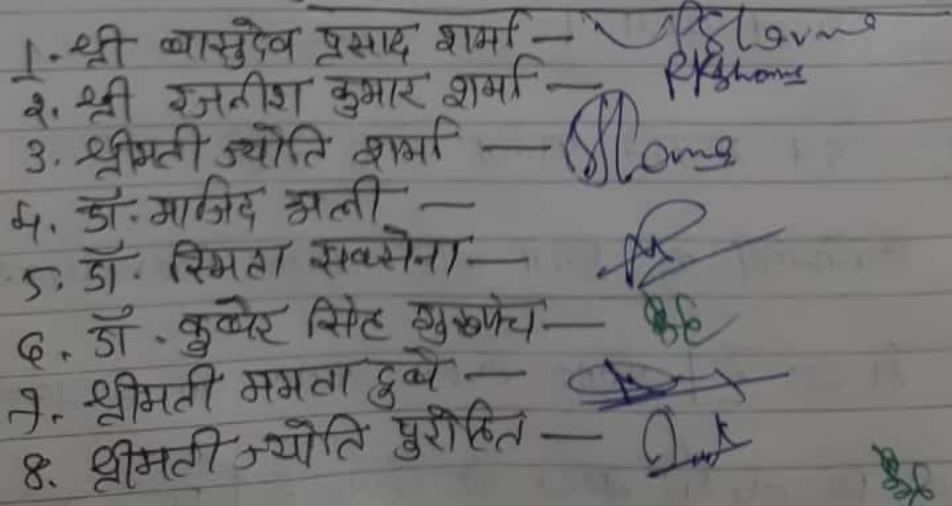 1. श्री वासुदेव प्रसाद शर्मा —
2. श्री रजनीश कुमार शर्मा — RKSharma
3. श्रीमती ज्योति शर्मा —
4. डॉ. माजिद अली —
5. डॉ. स्मिता सक्सेना —
6. डॉ. कुबेर सिंह गुरुपंच —
7. श्रीमती ममता दुबे —
8. श्रीमती ज्योति पुरोहित —